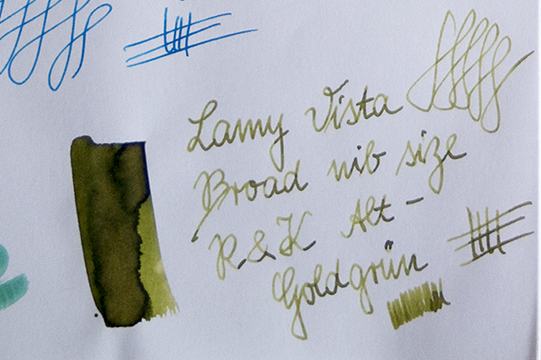 Lamy Vista
Broad nib size
R&K Alt-
Goldgrün